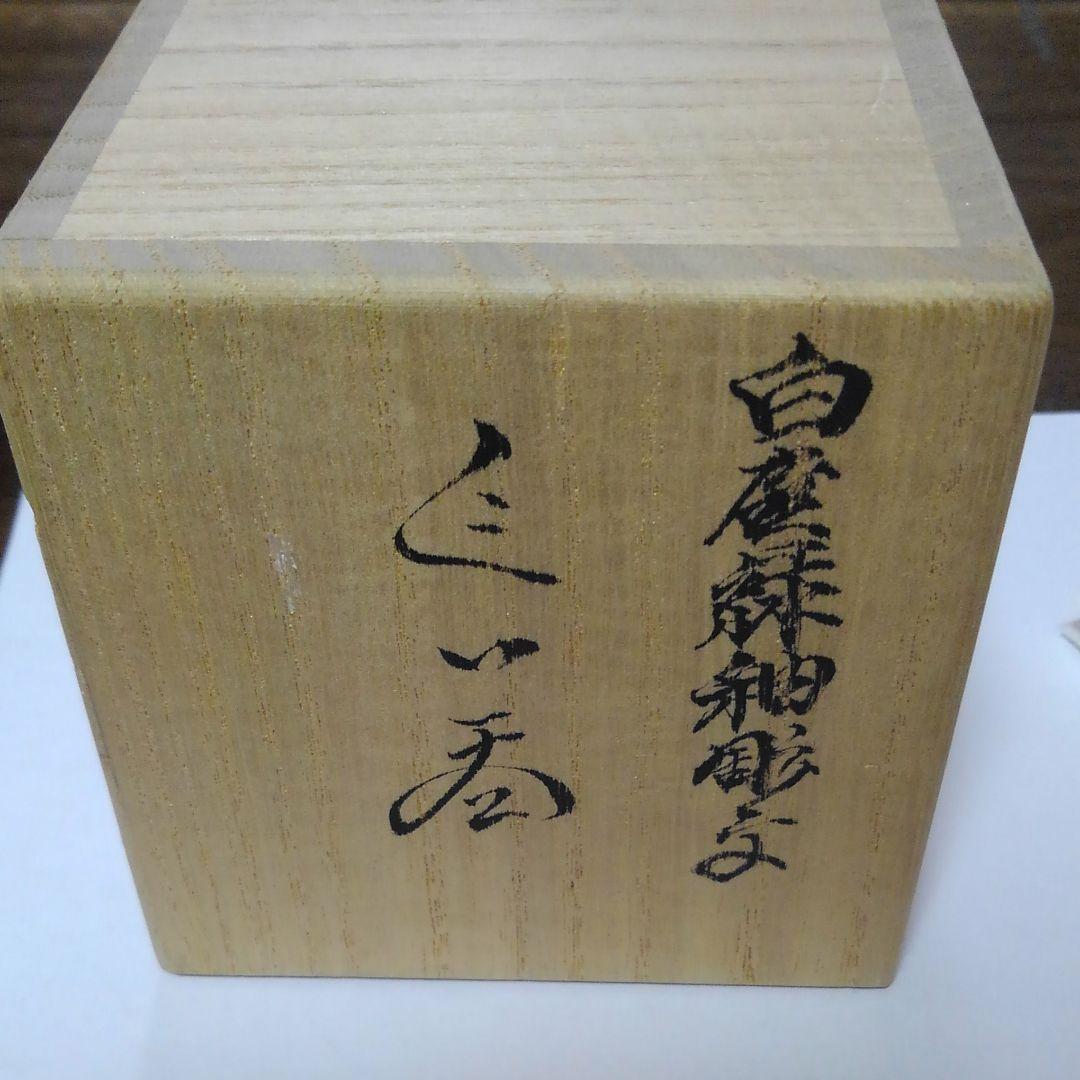 白緑釉彫文
ぐい呑